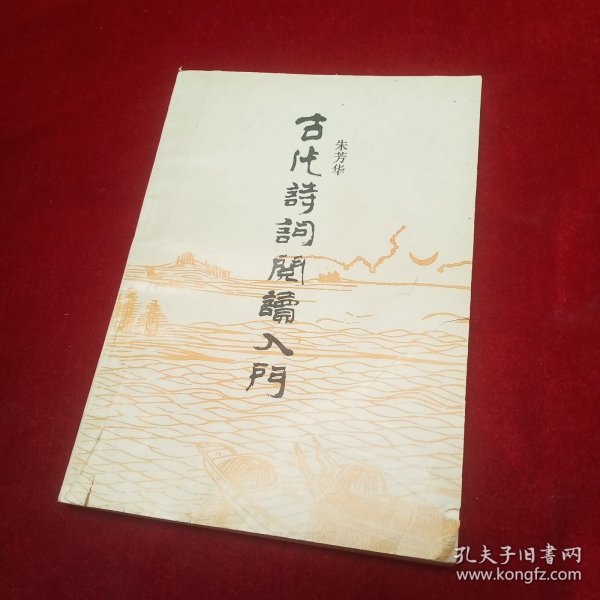 古代詩詞閱讀入門
朱芳华
孔夫子旧書网
www.kongfz.com